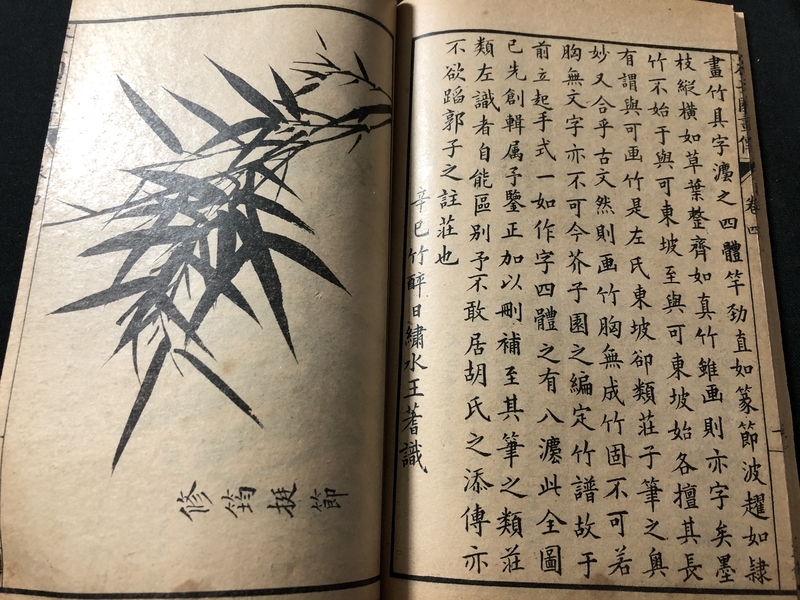 卷四
畫竹具字灋之四體竿勁直如篆節波趯如隸
枝縱横如草葉整齊如真竹雖画則亦字矣墨
竹不始于與可東坡至與可東坡始各擅其長
有謂與可画竹是左氏東坡卻類莊子筆之奥
妙又合乎古文然則画竹胸無成竹固不可若
胸無文字亦不可今芥子園之編定竹譜故于
前立起手式一如作字四體之有八灋此全圖
已先創輯属予鑒正加以刪補至其筆之類莊
類左識者自能區别予不敢居胡氏之添傳亦
不欲蹈郭子之註莊也
辛巳竹醉日繡水王蓍識
節挺筠修